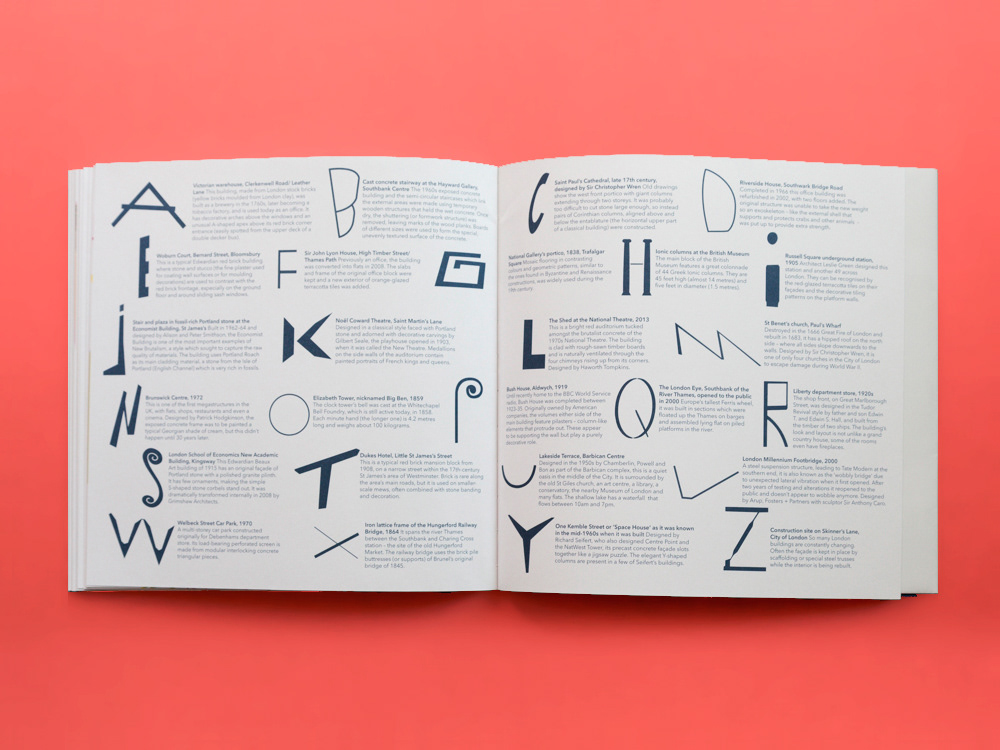 A
Victorian warehouse, Clerkenwell Road/ Leather
Lane This building, made from London stock bricks
(yellow bricks moulded from London clay), was
built as a brewery in the 1740s, later becoming a
tobacco factory, and is used today as an office. It
has decorative arches above the windows and an
unusual A-shaped apex above its red brick corner
entrance (easily spotted from the upper deck of a
double decker bus).
B
Cast concrete stairway at the Hayward Gallery,
Southbank Centre The 1960s exposed concrete
building and the semi-circular staircases which line
the external areas were made using temporary
wooden structures that held the wet concrete. Once
dry, the shuttering (or formwork structure) was
removed, leaving marks of the wood planks. Boards
of different sizes were used to form the special
unevenly textured surface of the concrete.
E
Woburn Court, Bernard Street, Bloomsbury
This is a typical Edwardian red brick building
where stone and stucco (the fine plaster used
for coating wall surfaces or for moulding
decorations) are used to contrast with the
red brick frontage, especially on the ground
floor and around sliding sash windows.
F
Sir John Lyon House, High Timber Street/
Thames Path Previously an office, the building
was converted into flats in 2008. The slabs
and frame of the original office block were
kept and a new exterior of orange-glazed
terracotta tiles was added.
G
j
Stair and plaza in fossil-rich Portland stone at the
Economist Building, St James's Built in 1962-64 and
designed by Alison and Peter Smithson, the Economist
Building is one of the most important examples of
New Brutalism, a style which sought to capture the raw
quality of materials. The building uses Portland Roach
as its main cladding material, a stone from the Isle of
Portland (English Channel) which is very rich in fossils.
K
Noël Coward Theatre, Saint Martin's Lane
Designed in a classical style faced with Portland
stone and adorned with decorative carvings by
Gilbert Seale, the playhouse opened in 1903,
when it was called the New Theatre. Medallions
on the side walls of the auditorium contain
painted portraits of French kings and queens.
N
Brunswick Centre, 1972
This is one of the first megastructures in the
UK, with flats, shops, restaurants and even a
cinema. Designed by Patrick Hodgkinson, the
exposed concrete frame was to be painted a
typical Georgian shade of cream, but this didn't
happen until 30 years later.
O
Elizabeth Tower, nicknamed Big Ben, 1859
The clock tower's bell was cast at the Whitechapel
Bell Foundry, which is still active today, in 1858.
Each minute hand (the longer one) is 4.2 metres
long and weighs about 100 kilograms.
P
S
London School of Economics New Academic
Building, Kingsway This Edwardian Beaux
Art building of 1913 has an original façade of
Portland stone with a polished granite plinth.
It has few ornaments, making the simple
S-shaped stone corbels stand out. It was
dramatically transformed internally in 2008 by
Grimshaw Architects.
T
Dukes Hotel, Little St James's Street
This is a typical red brick mansion block from
1908, on a narrow street within the 17th century
St James's area of Westminster. Brick is rare along
the area's main roads, but it is used on smaller-
scale mews, often combined with stone banding
and decoration.
W
Welbeck Street Car Park, 1970
A multi-storey car park constructed
originally for Debenhams department
store, its load-bearing perforated screen is
made from modular interlocking concrete
triangular pieces.
X
Iron lattice frame of the Hungerford Railway
Bridge, 1864 It spans the river Thames
between the Southbank and Charing Cross
station – the site of the old Hungerford
Market. The railway bridge uses the brick pile
buttresses (or supports) of Brunel's original
bridge of 1845.
C
Saint Paul's Cathedral, late 17th century,
designed by Sir Christopher Wren Old drawings
show the west front portico with giant columns
extending through two storeys. It was probably
too difficult to cut stone large enough, so instead
pairs of Corinthian columns, aligned above and
below the entablature (the horizontal upper part
of a classical building) were constructed.
D
Riverside House, Southwark Bridge Road
Completed in 1964 this office building was
refurbished in 2002, with two floors added. The
original structure was unable to take the new weight
so an exoskeleton – like the external shell that
supports and protects crabs and other animals
was put up to provide extra strength.
National Gallery's portico, 1838, Trafalgar
Square Mosaic flooring in contrasting
colours and geometric patterns, similar to
the ones found in Byzantine and Renaissance
constructions, was widely used during the
19th century.
H
Ionic columns at the British Museum
The main block of the British
Museum features a great colonnade
of 44 Greek Ionic columns. They are
45 feet high (almost 14 metres) and
five feet in diameter (1.5 metres).
i
Russell Square underground station,
1905 Architect Leslie Green designed this
station and another 49 across
London. They can be recognised by
the red glazed terracotta tiles on their
façades and the decorative tiling
patterns on the platform walls.
L
The Shed at the National Theatre, 2013
This is a bright red auditorium tucked
amongst the brutalist concrete of the
1970s National Theatre. The building
is clad with rough sawn timber boards
and is naturally ventilated through the
four chimneys rising up from its corners.
Designed by Haworth Tompkins.
M
St Benet's church, Paul's Wharf
Destroyed in the 1666 Great Fire of London and
rebuilt in 1683. It has a hipped roof on the north
side – where all sides slope downwards to the
walls. Designed by Sir Christopher Wren, it is
one of only four churches in the City of London
to escape damage during World War II.
Bush House, Aldwych, 1919
Until recently home to the BBC World Service
radio, Bush House was completed between
1923-35. Originally owned by American
companies, the volumes either side of the
main building feature pilasters – column-like
elements that protrude out. These appear
to be supporting the wall but play a purely
decorative role.
Q
The London Eye, Southbank of the
River Thames, opened to the public
in 2000 Europe's tallest Ferris wheel,
it was built in sections which were
floated up the Thames on barges
and assembled lying flat on piled
platforms in the river.
R
Liberty department store, 1920s
The shop front, on Great Marlborough
Street, was designed in the Tudor
Revival style by father and son Edwin
T. and Edwin S. Hall, and built from
the timber of two ships. The building's
look and layout is not unlike a grand
country house; some of the rooms
even have fireplaces.
U
Lakeside Terrace, Barbican Centre
Designed in the 1950s by Chamberlin, Powell and
Bon as part of the Barbican complex, this is a quiet
oasis in the middle of the City. It is surrounded by
the old St Giles church, an art centre, a library, a
conservatory, the nearby Museum of London and
many flats. The shallow lake has a waterfall, that
flows between 10am and 7pm.
V
London Millennium Footbridge, 2000
A steel suspension structure, leading to Tate Modern at the
southern end, it is also known as the 'wobbly bridge' due
to unexpected lateral vibration when it first opened. After
two years of testing and alterations it reopened to the
public and doesn't appear to wobble anymore. Designed
by Arup, Fosters + Partners with sculptor Sir Anthony Caro.
Y
One Kemble Street or 'Space House' as it was known
in the mid-1960s when it was built Designed by
Richard Seifert, who also designed Centre Point and
the NatWest Tower, its precast concrete façade slots
together like a jigsaw puzzle. The elegant Y-shaped
columns are present in a few of Seifert's buildings.
Z
Construction site on Skinner's Lane,
City of London So many London
buildings are constantly changing.
Often the façade is kept in place by
scaffolding or special steel trusses
while the interior is being rebuilt.